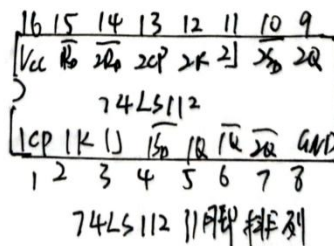 16 15 14 13 12 11 10 9
Vcc 2CP 2K 2J 2Q
74LS112
1CP 1K 1J 1Q GND
1 2 3 4 5 6 7 8
74LS112 引脚排列